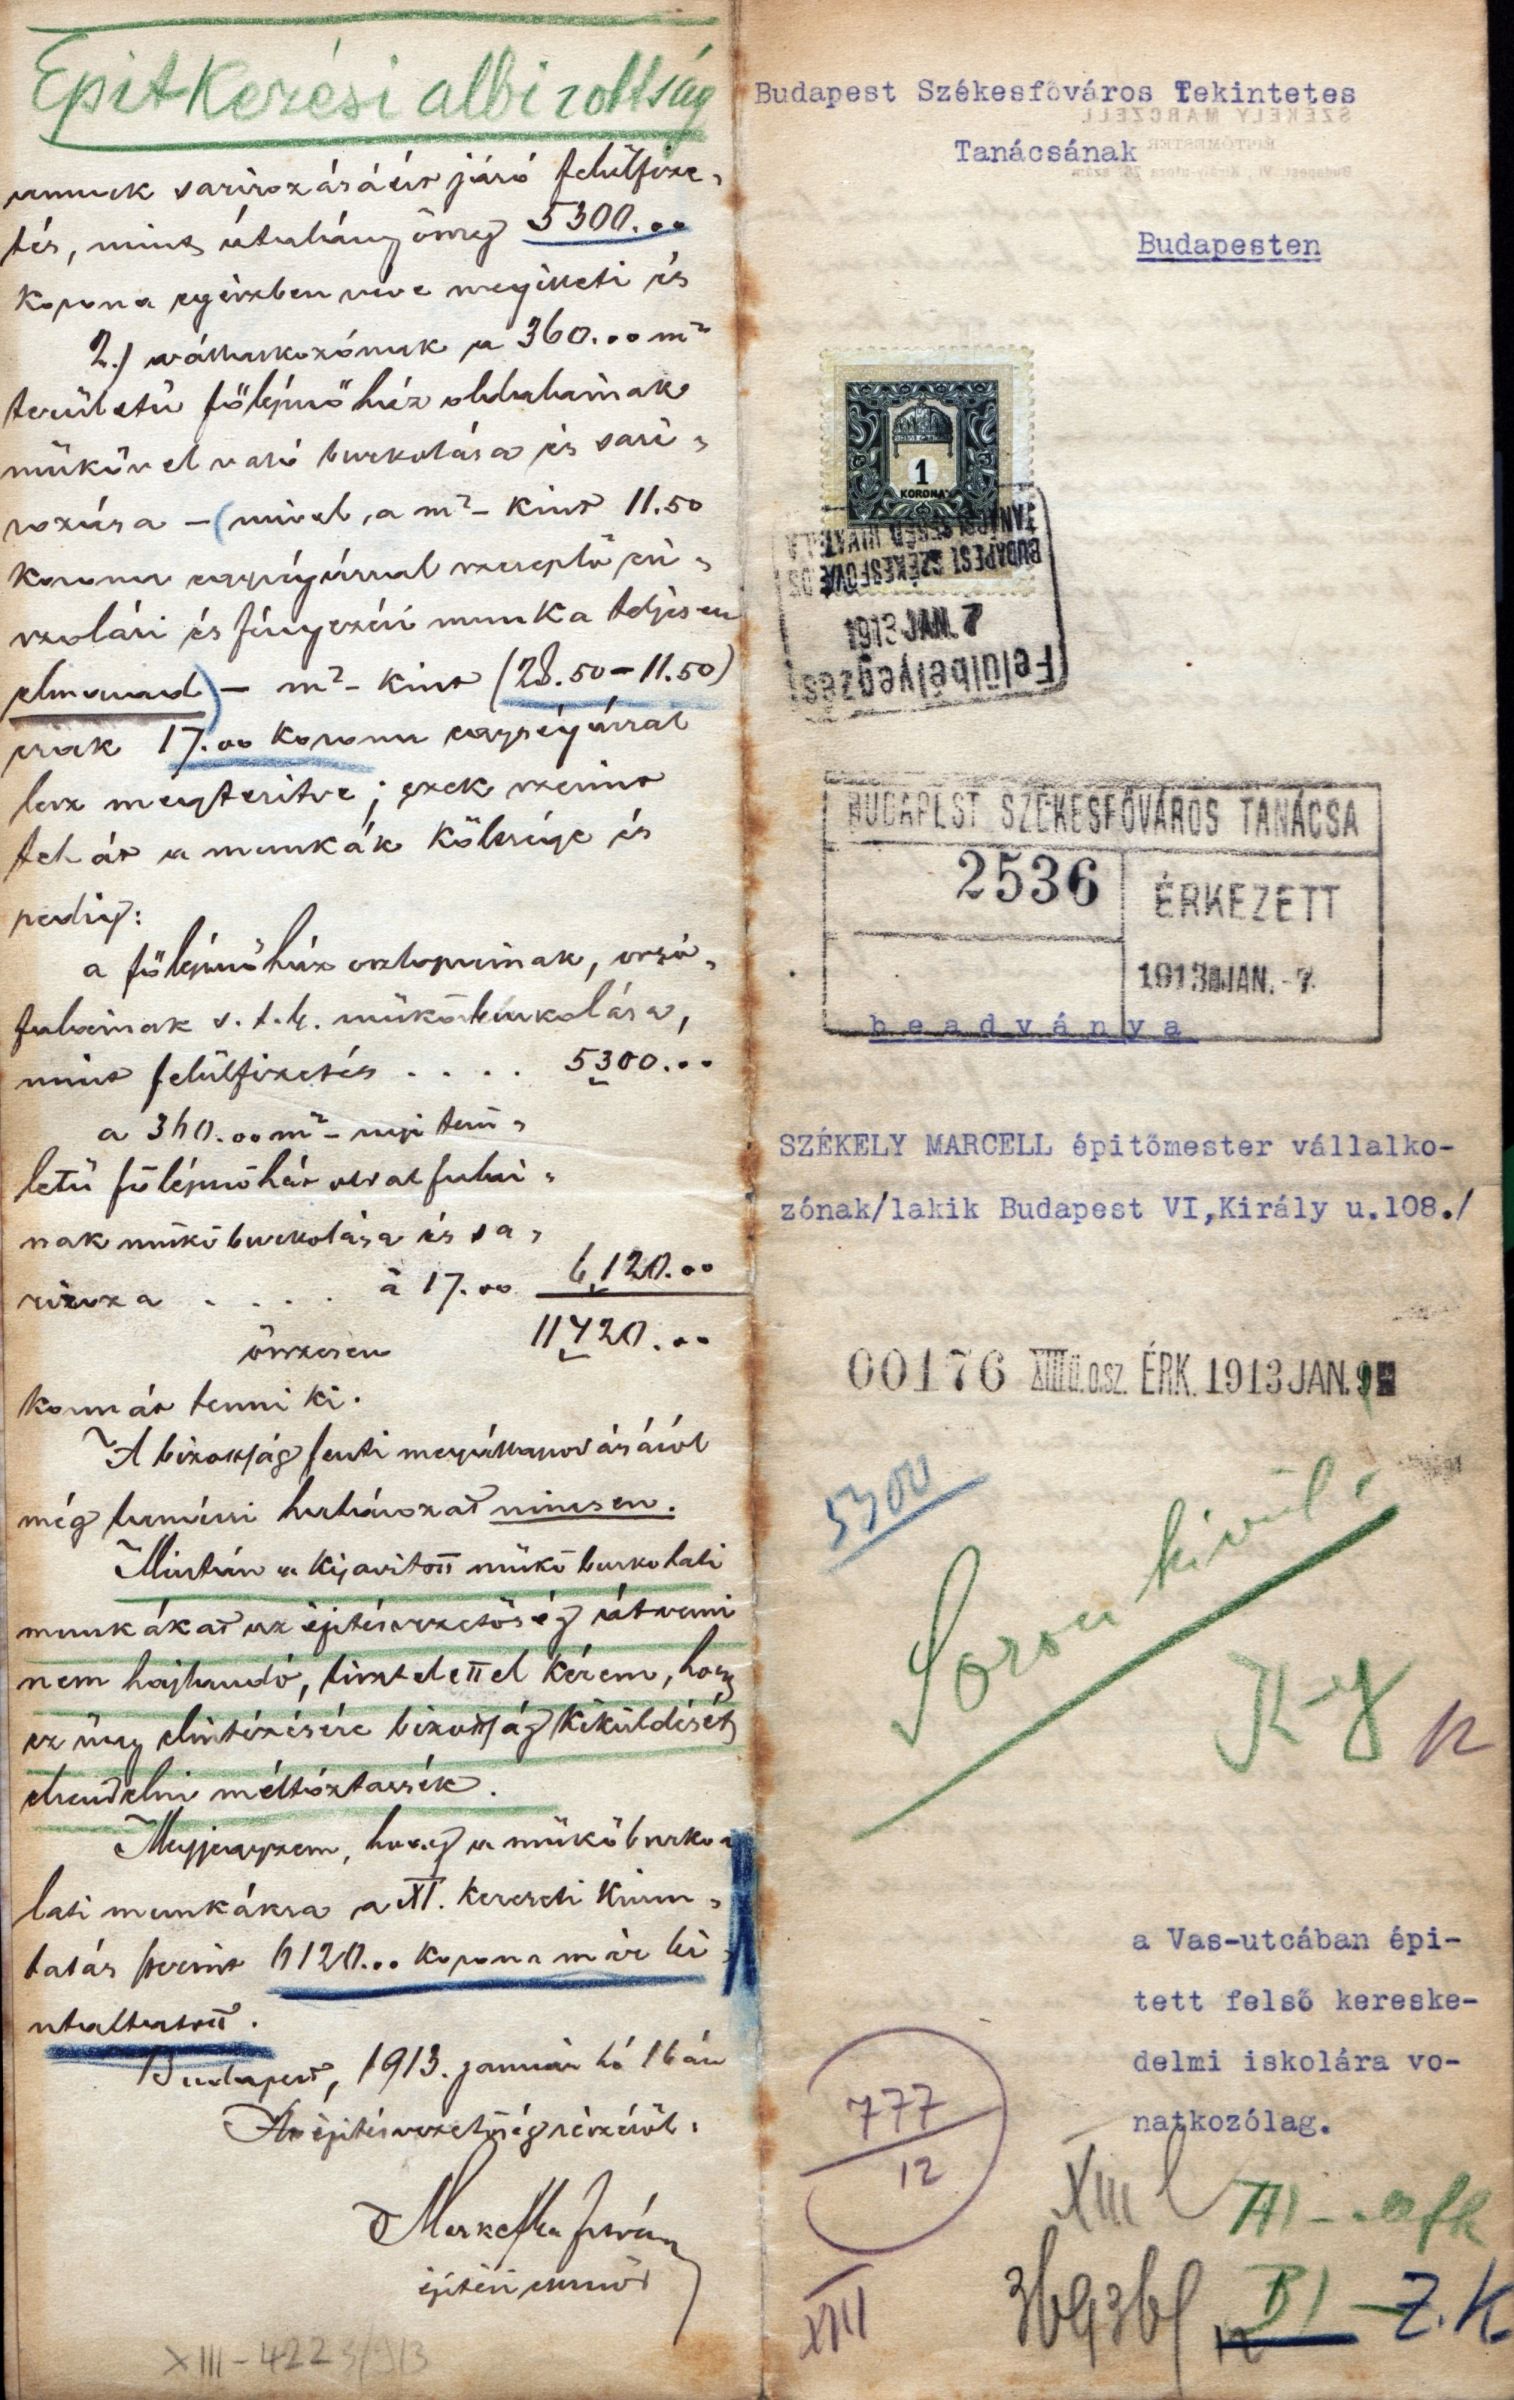 Építkezési albizottság
annak szárirozásáért járó felülfize-
tés, mint átalányösszeg 5300.00
korona egészben véve megilleti és
2.) vállalkozónak a 360.00 m²
területű főlépcsőház oldalainak
műkővel való burkolása és
- (mivel a m²-kint 11.50
korona egységárral szereplő csi-
szolási és fényezési munka teljesen
elmarad) - m²-kint (28.50-11.50)
csak 17.00 korona egységárral
lesz megtérítve; ezek szerint
tehát a munkák költsége és
pedig:
a főlépcsőház oszlopainak, orsó-
falainak s.t.b. műkőburkolása,
mint felülfizetés .... 5300.00
a 360.00 m²-nyi terü-
letű főlépcsőház oldalfalai-
nak műkőburkolása és
.... à 17.00 6,120.00
összesen 11420.00
koronát tenni ki.
A bizottság fenti megállapodásáról
még tanácsi határozat nincsen.
Miután a kijavított műkőburkolati
munkákat az építésvezetőség átvenni
nem hajlandó, tisztelettel kérem, hogy
az ügy elintézésére bizottság kiküldését
elrendelni méltóztassék.
Megjegyzem, hogy a műkőburko-
lati munkákra a XI. kereseti kimu-
tatás szerint 6120.00 korona már ki
utaltatott.
Budapest, 1913. január hó 16án
Az építésvezetőség részéről:
István
építési
XIII-4223/913
Budapest Székesfőváros Tekintetes
SZÉKELY MARCZELL
ÉPITŐMESTER
Tanácsának
Budapesten
1
KORONA
BUDAPEST SZÉKESFŐVÁROS
1913 JAN. 7
Felülbélyegzési
BUDAPEST SZÉKESFŐVÁROS TANÁCSA
2536
ÉRKEZETT
1913 JAN. - 7
beadványa
SZÉKELY MARCELL épitőmester vállalko-
zónak/lakik Budapest VI,Király u.108./
00176 XIII ü.o.sz. ÉRK. 1913 JAN. 9
5300
Soron kívül!
K-y
a Vas-utcában épi-
tett felső kereske-
delmi iskolára vo-
natkozólag.
777
12
XIII
XIII
BI - Z.K.